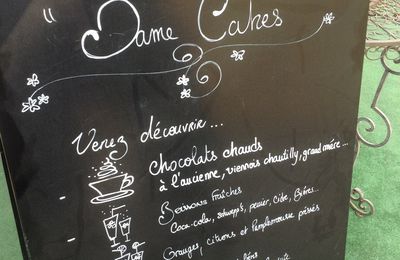 Dame Cakes
Venez découvrir...
chocolats chauds
à l'ancienne, viennois chantilly, grand mère...
Boissons fraîches
Coca-cola, schweppes, perrier, Cidre, Bières...
Oranges, citrons et Pamplemousse pressés